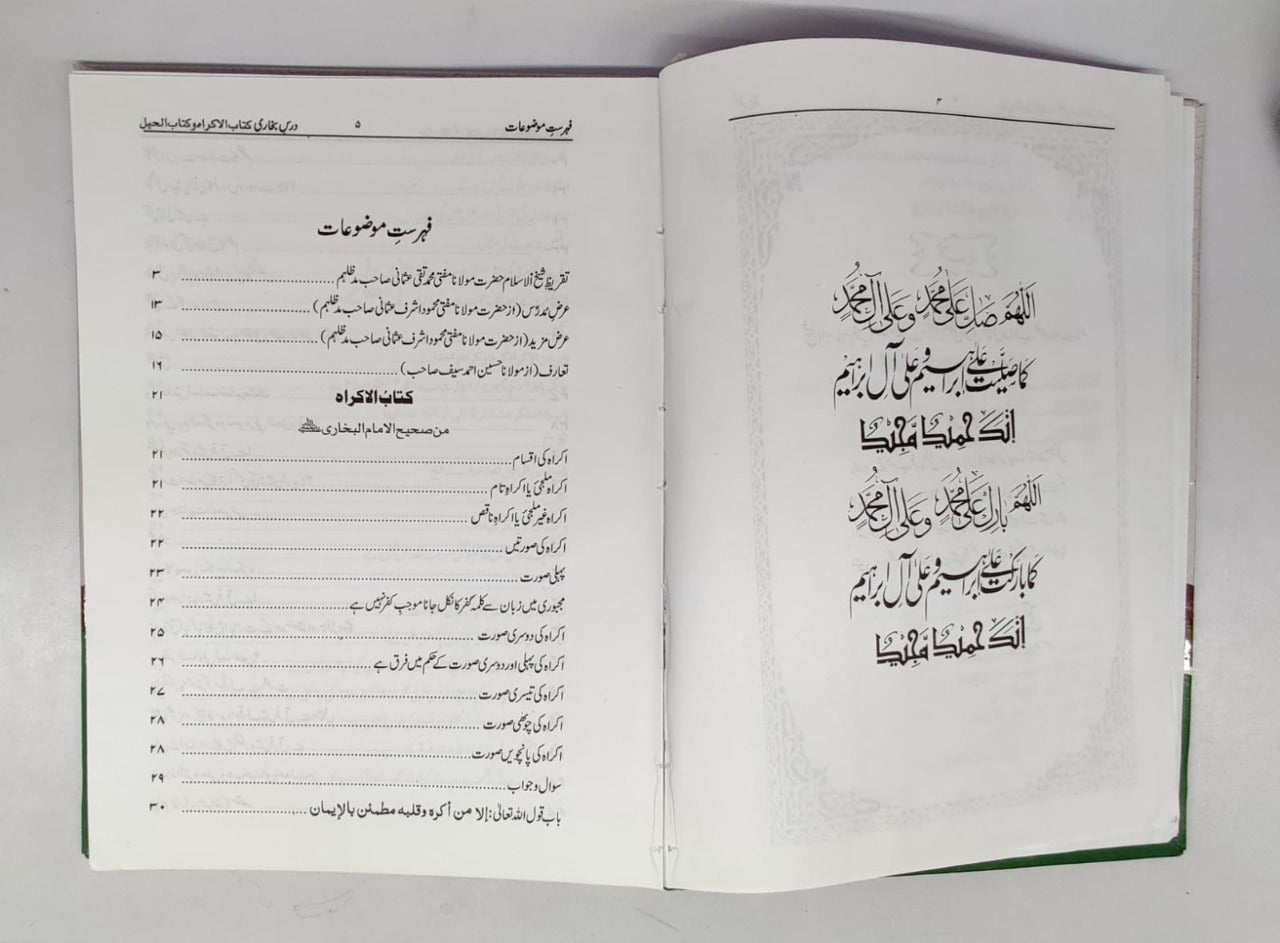 ۴
اَللّٰهُمَّ صَلِّ عَلٰى مُحَمَّدٍ وَّعَلٰى آلِ مُحَمَّدٍ
كَمَا صَلَّيْتَ عَلٰى اِبْرَاهِيْمَ وَعَلٰى آلِ اِبْرَاهِيْمَ
اِنَّكَ حَمِيْدٌ مَّجِيْدٌ
اَللّٰهُمَّ بَارِكْ عَلٰى مُحَمَّدٍ وَّعَلٰى آلِ مُحَمَّدٍ
كَمَا بَارَكْتَ عَلٰى اِبْرَاهِيْمَ وَعَلٰى آلِ اِبْرَاهِيْمَ
اِنَّكَ حَمِيْدٌ مَّجِيْدٌ
فہرستِ موضوعات ۵ درسِ بخاری کتاب الاکراہ وکتاب الحیل
فہرستِ موضوعات
تقریظ شیخ الاسلام حضرت مولانا مفتی محمد تقی عثمانی صاحب مدظلہم ........ ۳
عرضِ مدرّس (از حضرت مولانا مفتی محمود اشرف عثمانی صاحب مدظلہم) ........ ۱۳
عرض مزید (از حضرت مولانا مفتی محمود اشرف عثمانی صاحب مدظلہم) ........ ۱۵
تعارف (از مولانا حسین احمد سیف صاحب) ........ ۱۶
کتابُ الاکراہ ۲۱
من صحیح الامام البخاری رحمہ اللہ
اکراہ کی اقسام ........ ۲۱
اکراہ ملجئ یا اکراہِ تام ........ ۲۱
اکراہ غیر ملجئ یا اکراہِ ناقص ........ ۲۲
اکراہ کی صورتیں ........ ۲۲
پہلی صورت ........ ۲۳
مجبوری میں زبان سے کلمہ کفر کا نکل جانا موجبِ کفر نہیں ہے ........ ۲۴
اکراہ کی دوسری صورت ........ ۲۵
اکراہ کی پہلی اور دوسری صورت کے حکم میں فرق ہے ........ ۲۶
اکراہ کی تیسری صورت ........ ۲۷
اکراہ کی چوتھی صورت ........ ۲۸
اکراہ کی پانچویں صورت ........ ۲۸
سوال و جواب ........ ۲۹
باب قول اللہ تعالیٰ: إلا من أكره وقلبه مطمئن بالإيمان ........ ۳۰